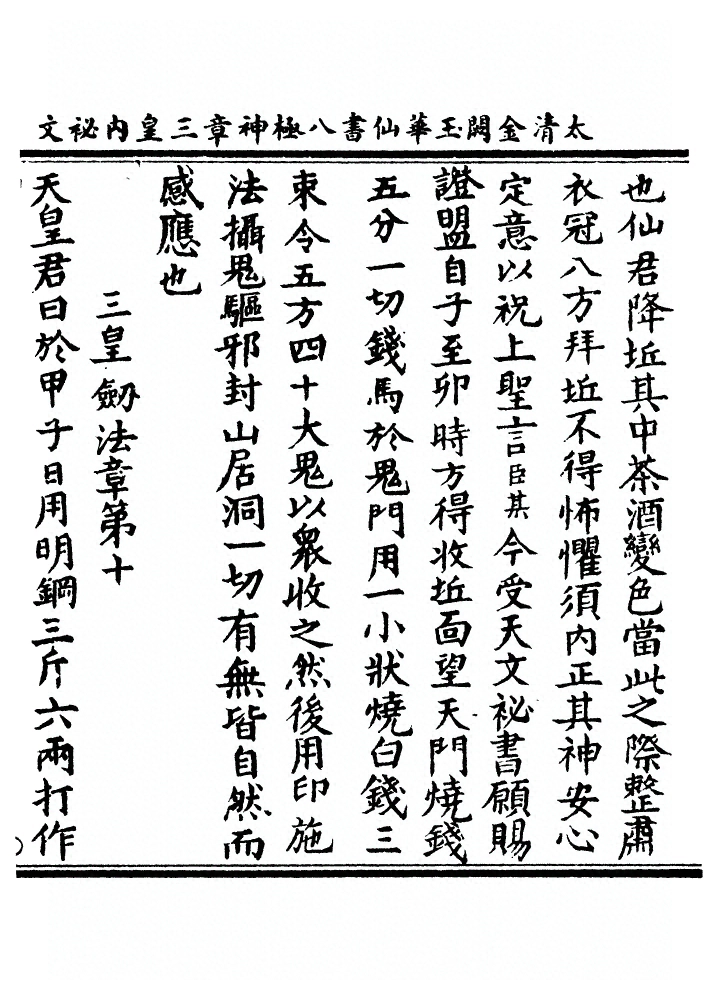 太清金闕玉華仙書八極神章三皇內祕文
也仙君降坵其中茶酒變色當此之際整肅
衣冠八方拜坵不得怖懼須內正其神安心
定意以祝上聖言臣某今受天文祕書願賜
證盟自子至卯時方得收坵面望天門燒錢
五分一切錢馬於鬼門用一小狀燒白錢三
束令五方四十大鬼以眾收之然後用印施
法攝鬼驅邪封山居洞一切有無皆自然而
感應也
三皇劔法章第十
天皇君曰於甲子日用明鋼三斤六兩打作